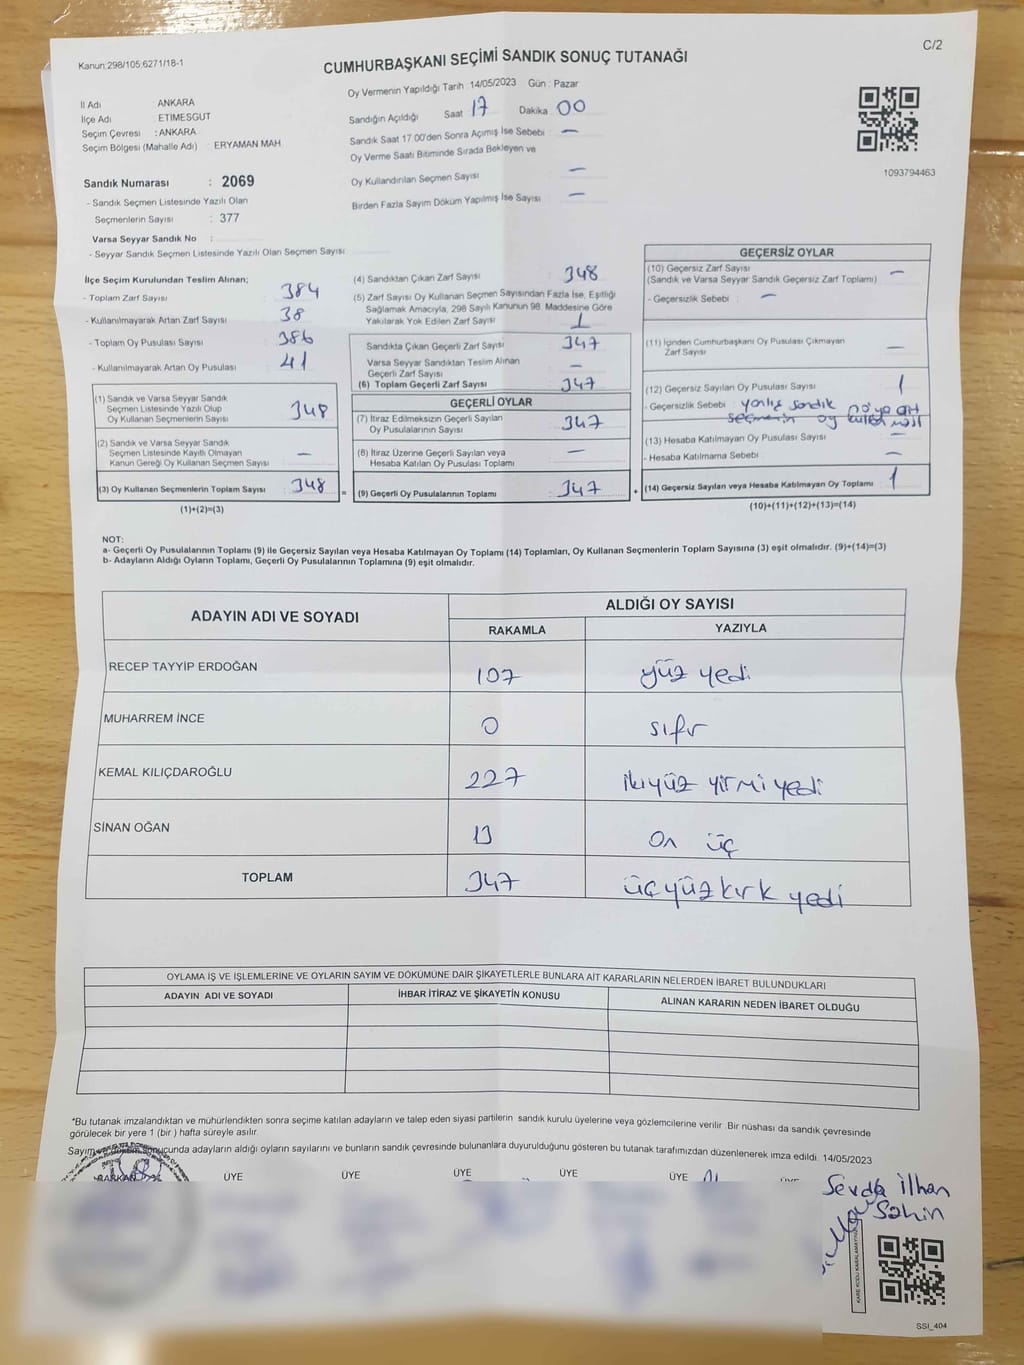 Kanun:298/105;6271/18-1
C/2
CUMHURBAŞKANI SEÇİMİ SANDIK SONUÇ TUTANAĞI
Oy Vermenin Yapıldığı Tarih :14/05/2023 Gün : Pazar
İl Adı ANKARA
İlçe Adı : ETİMESGUT
Seçim Çevresi : ANKARA
Seçim Bölgesi (Mahalle Adı) : ERYAMAN MAH
Sandık Numarası : 2069
- Sandık Seçmen Listesinde Yazılı Olan
Seçmenlerin Sayısı : 377
Varsa Seyyar Sandık No :
- Seyyar Sandık Seçmen Listesinde Yazılı Olan Seçmen Sayısı
Sandığın Açıldığı Saat 17 Dakika 00
Sandık Saat 17.00'den Sonra Açımış İse Sebebi : —
Oy Verme Saati Bitiminde Sırada Bekleyen ve
Oy Kullandırılan Seçmen Sayısı : —
Birden Fazla Sayım Döküm Yapılmış İse Sayısı : —
1093794463
İlçe Seçim Kurulundan Teslim Alınan;
- Toplam Zarf Sayısı 384
- Kullanılmayarak Artan Zarf Sayısı 38
- Toplam Oy Pusulası Sayısı 386
- Kullanılmayarak Artan Oy Pusulası 41
(1) Sandık ve Varsa Seyyar Sandık
Seçmen Listesinde Yazılı Olup
Oy Kullanan Seçmenlerin Sayısı 348
(2) Sandık ve Varsa Seyyar Sandık
Seçmen Listesinde Kayıtlı Olmayan
Kanun Gereği Oy Kullanan Seçmen Sayısı —
(3) Oy Kullanan Seçmenlerin Toplam Sayısı 348
(1)+(2)=(3)
(4) Sandıktan Çıkan Zarf Sayısı : 348
(5) Zarf Sayısı Oy Kullanan Seçmen Sayısından Fazla İse, Eşitliği
Sağlamak Amacıyla, 298 Sayılı Kanunun 98. Maddesine Göre
Yakılarak Yok Edilen Zarf Sayısı 1
Sandıkta Çıkan Geçerli Zarf Sayısı 347
Varsa Seyyar Sandıktan Teslim Alınan
Geçerli Zarf Sayısı —
(6) Toplam Geçerli Zarf Sayısı 347
GEÇERLİ OYLAR
(7) İtiraz Edilmeksizin Geçerli Sayılan
Oy Pusulalarının Sayısı 347
(8) İtiraz Üzerine Geçerli Sayılan veya
Hesaba Katılan Oy Pusulası Toplamı —
= (9) Geçerli Oy Pusulalarının Toplamı 347 +
GEÇERSİZ OYLAR
(10) Geçersiz Zarf Sayısı
(Sandık ve Varsa Seyyar Sandık Geçersiz Zarf Toplamı) —
- Geçersizlik Sebebi : —
(11) İçinden Cumhurbaşkanı Oy Pusulası Çıkmayan
Zarf Sayısı —
(12) Geçersiz Sayılan Oy Pusulası Sayısı 1
- Geçersizlik Sebebi : yanlış sandık no'ya ait
seçmenin oy
(13) Hesaba Katılmayan Oy Pusulası Sayısı —
- Hesaba Katılmama Sebebi : —
(14) Geçersiz Sayılan veya Hesaba Katılmayan Oy Toplamı 1
(10)+(11)+(12)+(13)=(14)
NOT:
a- Geçerli Oy Pusulalarının Toplamı (9) ile Geçersiz Sayılan veya Hesaba Katılmayan Oy Toplamı (14) Toplamları, Oy Kullanan Seçmenlerin Toplam Sayısına (3) eşit olmalıdır. (9)+(14)=(3)
b- Adayların Aldığı Oyların Toplamı, Geçerli Oy Pusulalarının Toplamına (9) eşit olmalıdır.
ADAYIN ADI VE SOYADI ALDIĞI OY SAYISI
RAKAMLA YAZIYLA
RECEP TAYYİP ERDOĞAN 107 yüz yedi
MUHARREM İNCE 0 sıfır
KEMAL KILIÇDAROĞLU 227 ikiyüz yirmi yedi
SİNAN OĞAN 13 On üç
TOPLAM 347 üçyüzkırk yedi
OYLAMA İŞ VE İŞLEMLERİNE VE OYLARIN SAYIM VE DÖKÜMÜNE DAİR ŞİKAYETLERLE BUNLARA AİT KARARLARIN NELERDEN İBARET BULUNDUKLARI
ADAYIN ADI VE SOYADI İHBAR İTİRAZ VE ŞİKAYETİN KONUSU ALINAN KARARIN NEDEN İBARET OLDUĞU
*Bu tutanak imzalandıktan ve mühürlendikten sonra seçime katılan adayların ve talep eden siyasi partilerin sandık kurulu üyelerine veya gözlemcilerine verilir. Bir nüshası da sandık çevresinde
görülecek bir yere 1 (bir ) hafta süreyle asılır.
Sayım ve döküm sonucunda adayların aldığı oyların sayılarını ve bunların sandık çevresinde bulunanlara duyurulduğunu gösteren bu tutanak tarafımızdan düzenlenerek imza edildi. 14/05/2023
BAŞKAN ÜYE ÜYE ÜYE ÜYE ÜYE
Sevda İlhan
Şahin
SSI_404